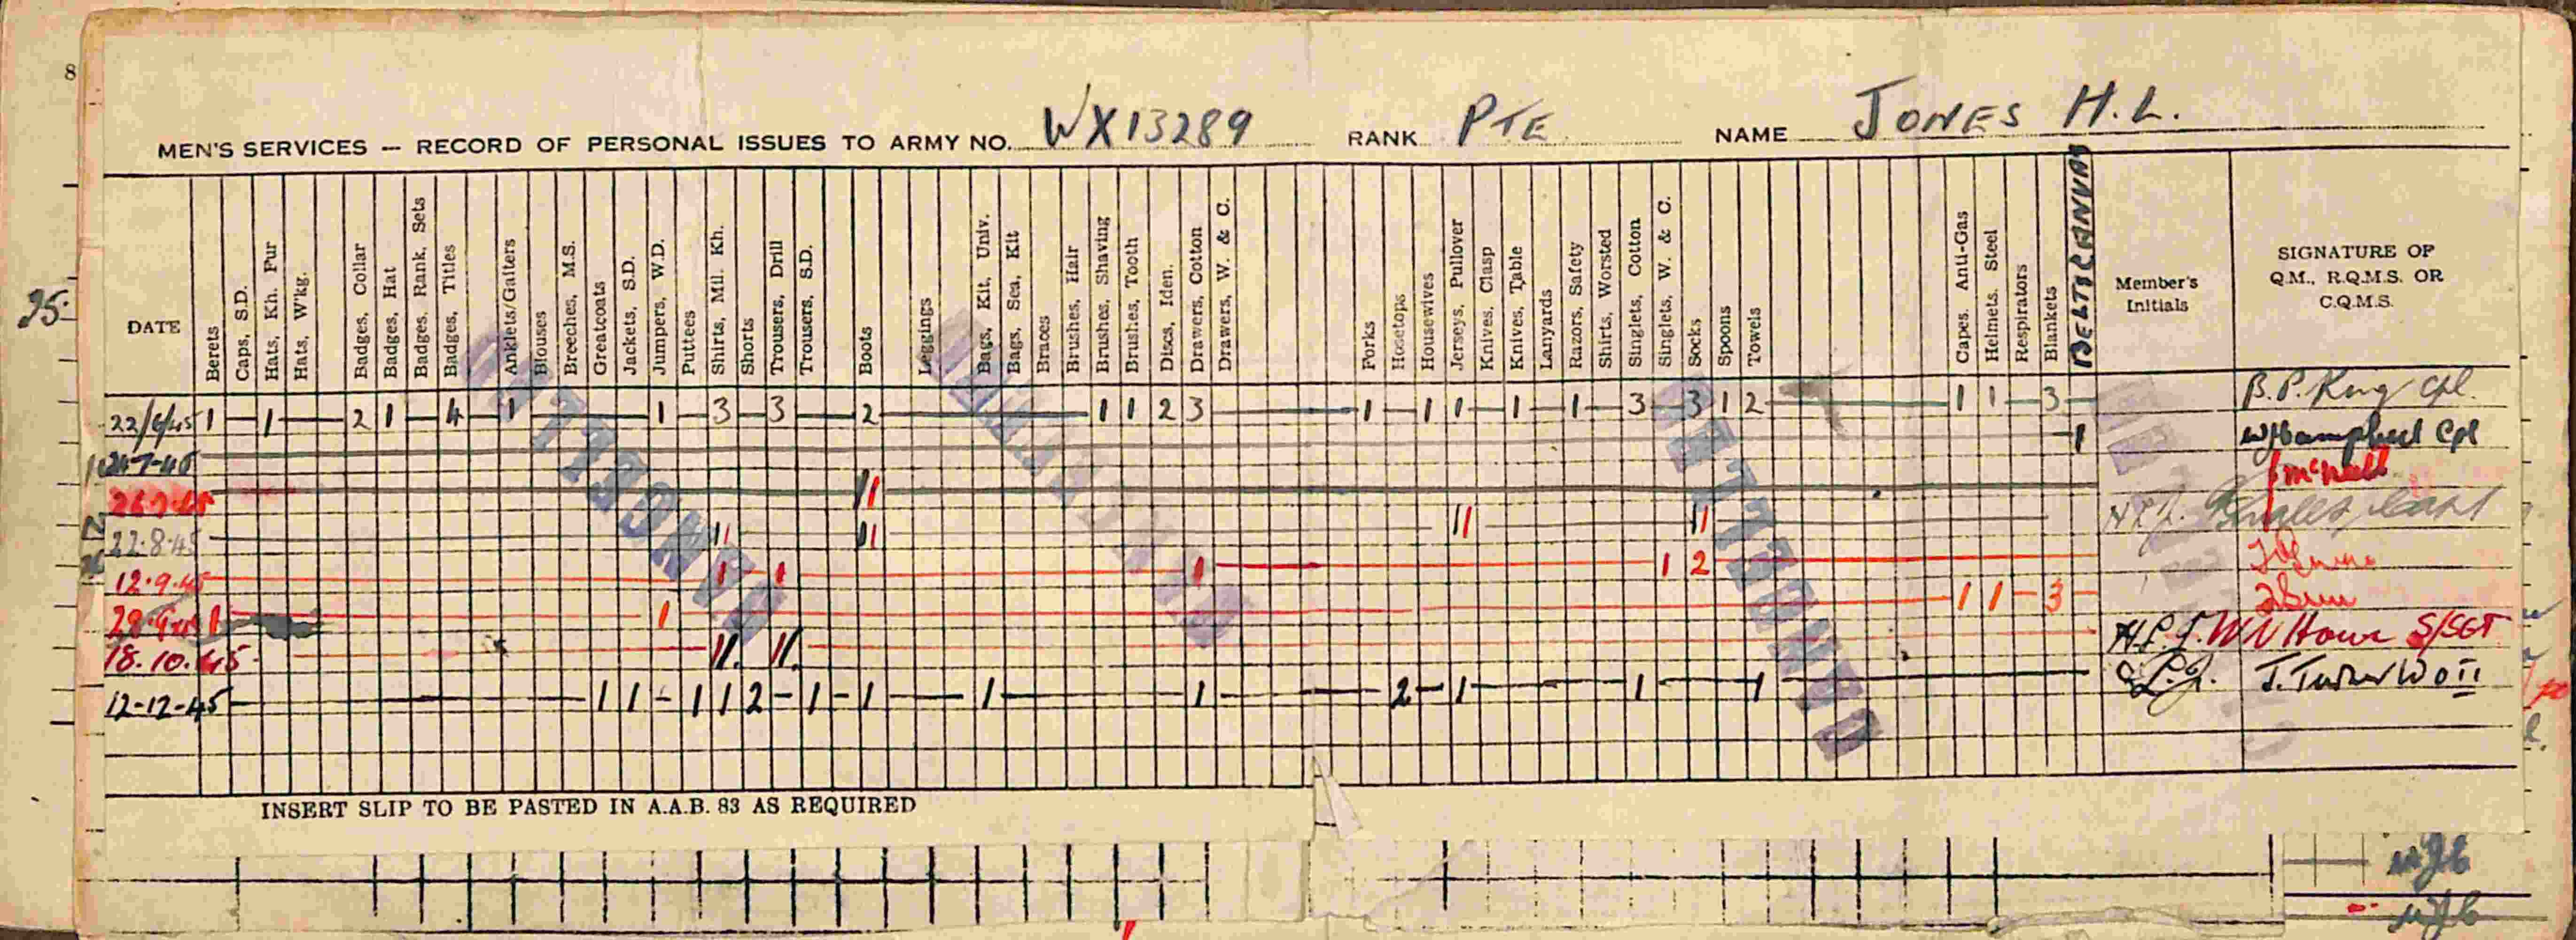 8
MEN'S SERVICES — RECORD OF PERSONAL ISSUES TO ARMY NO. WX13289 RANK PTE NAME JONES H.L.
DATE Berets Caps, S.D. Hats, Kh. Fur Hats, W'kg. Badges, Collar Badges, Hat Badges, Rank, Sets Badges, Titles Anklets/Gaiters Blouses Breeches, M.S. Greatcoats Jackets, S.D. Jumpers, W.D. Puttees Shirts, Mil. Kh. Shorts Trousers, Drill Trousers, S.D. Boots Leggings Bags, Kit, Univ. Bags, Sea, Kit Braces Brushes, Hair Brushes, Shaving Brushes, Tooth Discs, Iden. Drawers, Cotton Drawers, W. & C. Forks Hosetops Housewives Jerseys, Pullover Knives, Clasp Knives, Table Lanyards Razors, Safety Shirts, Worsted Singlets, Cotton Singlets, W. & C. Socks Spoons Towels Capes, Anti-Gas Helmets, Steel Respirators Blankets Member's Initials SIGNATURE OF Q.M., R.Q.M.S. OR C.Q.M.S.
95
22/6/45 1 1 2 1 4 1 1 3 3 2 1 1 2 3 1 1 1 1 1 3 3 1 2 1 1 3 B.P. King Cpl.
1 WJCampbell Cpl
11 McNeill
22.8.45 11 11 11 11
12.9.45 1 1 1 1 2
1 1 1 1 3
18.10.45 11. 11. H.L.J. WN Howe S/SGT
12-12-45 1 1 1 1 2 1 1 1 1 2 1 1 1 L.J. J. Turner WO II
CANCELLED
CANCELLED
CANCELLED
INSERT SLIP TO BE PASTED IN A.A.B. 83 AS REQUIRED